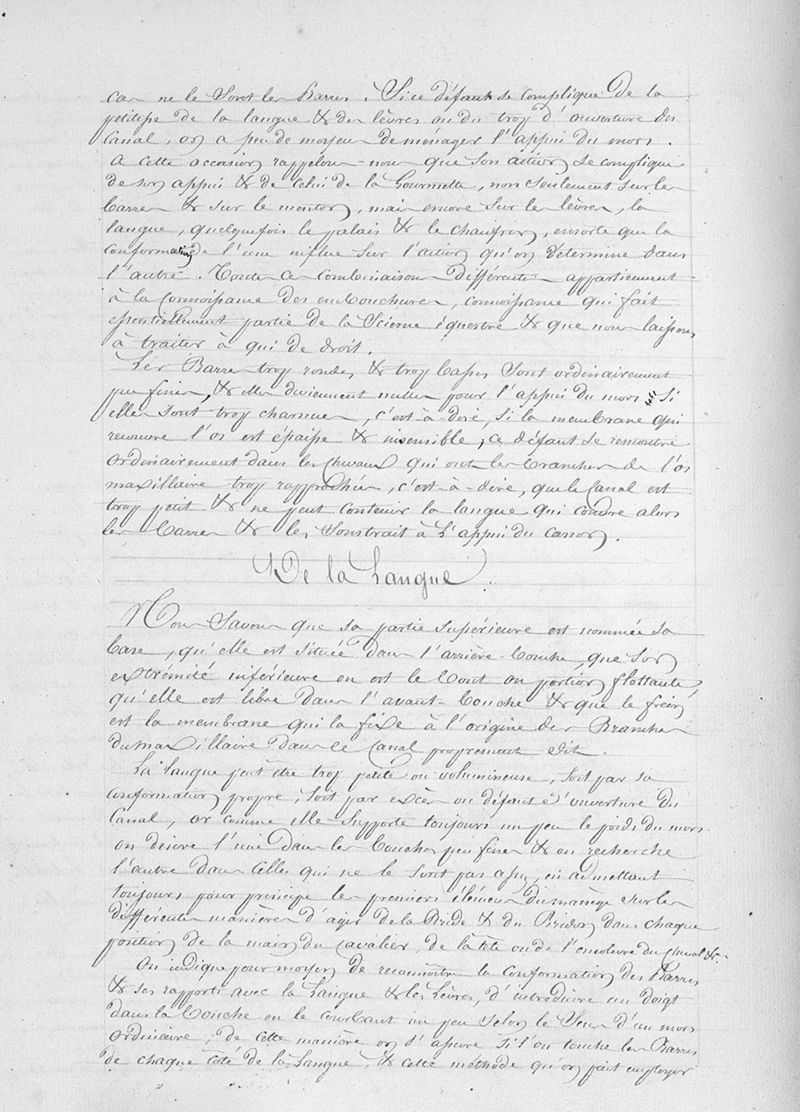 car ne le sont les Barres. Si ce défaut se complique de la
petitesse de la langue & des lèvres ou du trop d'ouverture du
Canal, on a peu de moyens de ménager l'appui du mors.
A cette occasion rappelons-nous que son action se complique
de son appui & de celui de la Gourmette, non seulement sur les
barres & sur le menton, mais encore sur les lèvres, la
langue, quelquefois le palais & le chanfrein, ensorte que la
conformation de l'une influe sur l'action qu'on détermine dans
l'autre. Toutes ces combinaisons différentes appartiennent
à la connoissance des embouchures, connoissance qui fait
essentiellement partie de la Science équestre & que nous laissons
à traiter à qui de droit.
Les Barres trop rondes & trop basses sont ordinairement
peu fines, & elles deviennent nulles pour l'appui du mors si
elles sont trop charnues, c'est-à-dire, si la membrane qui
recouvre l'os est épaisse & insensible; ce défaut se rencontre
ordinairement dans les chevaux qui ont les branches de l'os
maxillaire trop rapprochées, c'est-à-dire, que le Canal est
trop petit & ne peut contenir la langue qui couvre alors
les barres & les soustrait à l'appui du canon.
De la Langue.
Nous savons que sa partie supérieure est nommée sa
base, qu'elle est située dans l'arrière-bouche, que son
extrémité inférieure en est le bout ou portion flottante,
qu'elle est libre dans l'avant-bouche & que le frein
est la membrane qui la fixe à l'origine des Branches
du maxillaire dans le Canal proprement dit.
La langue peut être trop petite ou volumineuse, soit par sa
conformation propre, soit par excès ou défaut d'ouverture du
Canal, or comme elle supporte toujours un peu le poids du mors
on désire l'une dans les bouches peu fines & on recherche
l'autre dans celles qui ne le sont pas assez, en admettant
toujours pour principe les premiers élémens du manège sur les
différentes manières d'agir de la Bride & du Bridon dans chaque
position de la main du cavalier, de la tête ou de l'encolure du cheval &c.
On indique pour moyen de reconnoître la conformation des Barres
& ses rapports avec la Langue & les lèvres, d'introduire un doigt
dans la bouche en le courbant un peu selon le sens d'un mors
ordinaire; de cette manière on s'assure si l'on touche les Barres
de chaque côté de la Langue, & cette méthode qu'on fait employer